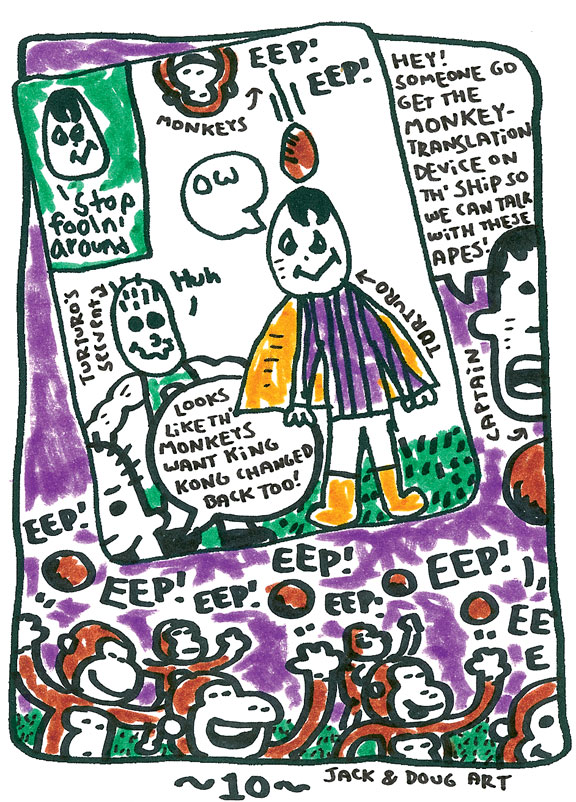 EEP!
EEP!
MONKEYS
OW
HEY!
SOMEONE GO
GET THE
MONKEY-
TRANSLATION
DEVICE ON
TH' SHIP SO
WE CAN TALK
WITH THESE
APES!
Stop
fooln'
around
TURTURO'S
Serventy
Huh
TURTURO
CAPTAIN
LOOKS
LIKE TH'
MONKEYS
WANT KING
KONG CHANGED
BACK TOO!
EEP!
EEP!
EEP!
EEP!
EEP.
EEP!
EE
E
~10~
JACK & DOUG ART